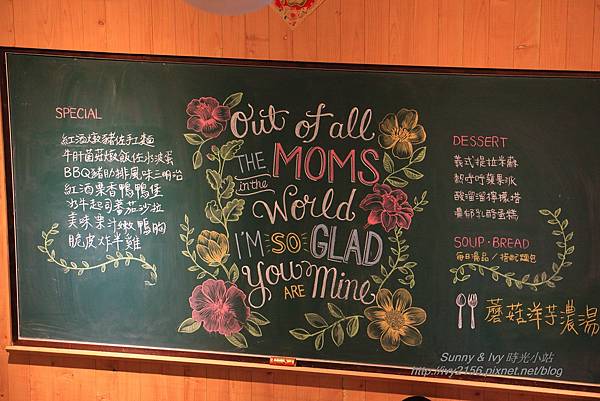 SPECIAL
紅酒燉豬佐手工麵
牛肝菌菇燉飯佐水波蛋
BBQ豬肋排風味三明治
紅酒果香鴨鴨堡
水牛起司蕃茄沙拉
美味果汁嫩鴨胸
脆皮炸半雞
Out of all
THE MOMS
in the
World
I'M SO GLAD
You ARE Mine
DESSERT
義式提拉米蘇
熱呼呼蘋果派
酸溜溜檸檬塔
濃郁乳酪蛋糕
SOUP · BREAD
每日濃品 / 搭配麵包
蘑菇洋芋濃湯
Sunny & Ivy 時光小站
http://ivy2156.pixnet.net/blog